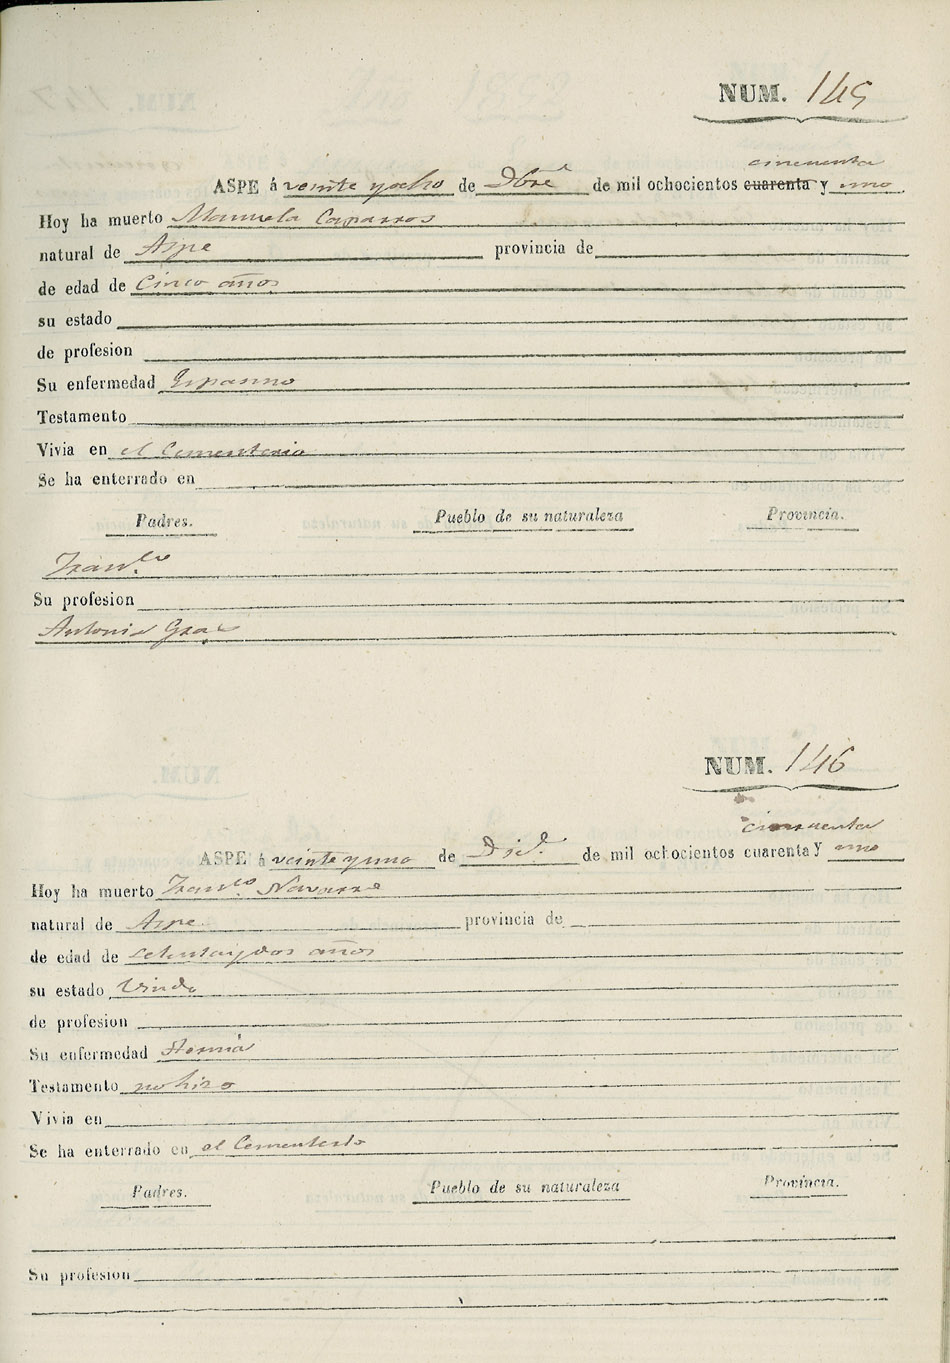 NUM. 145
cincuenta
ASPE á veinte y ocho de Dbre de mil ochocientos cuarenta y uno
Hoy ha muerto Manuela Caparros
natural de Aspe provincia de
de edad de Cinco años
su estado
de profesion
Su enfermedad Espasmo
Testamento
Vivia en el Cementerio
Se ha enterrado en
Padres. Pueblo de su naturaleza Provincia.
Franco
Su profesion
Antonia
NUM. 146
cincuenta
ASPE á veinte y uno de Dic. de mil ochocientos cuarenta y uno
Hoy ha muerto Franco Navarro
natural de Aspe provincia de
de edad de setenta y dos años
su estado Viudo
de profesion
Su enfermedad
Testamento no hizo
Vivia en
Se ha enterrado en el Cementerio
Padres. Pueblo de su naturaleza Provincia.
Su profesion